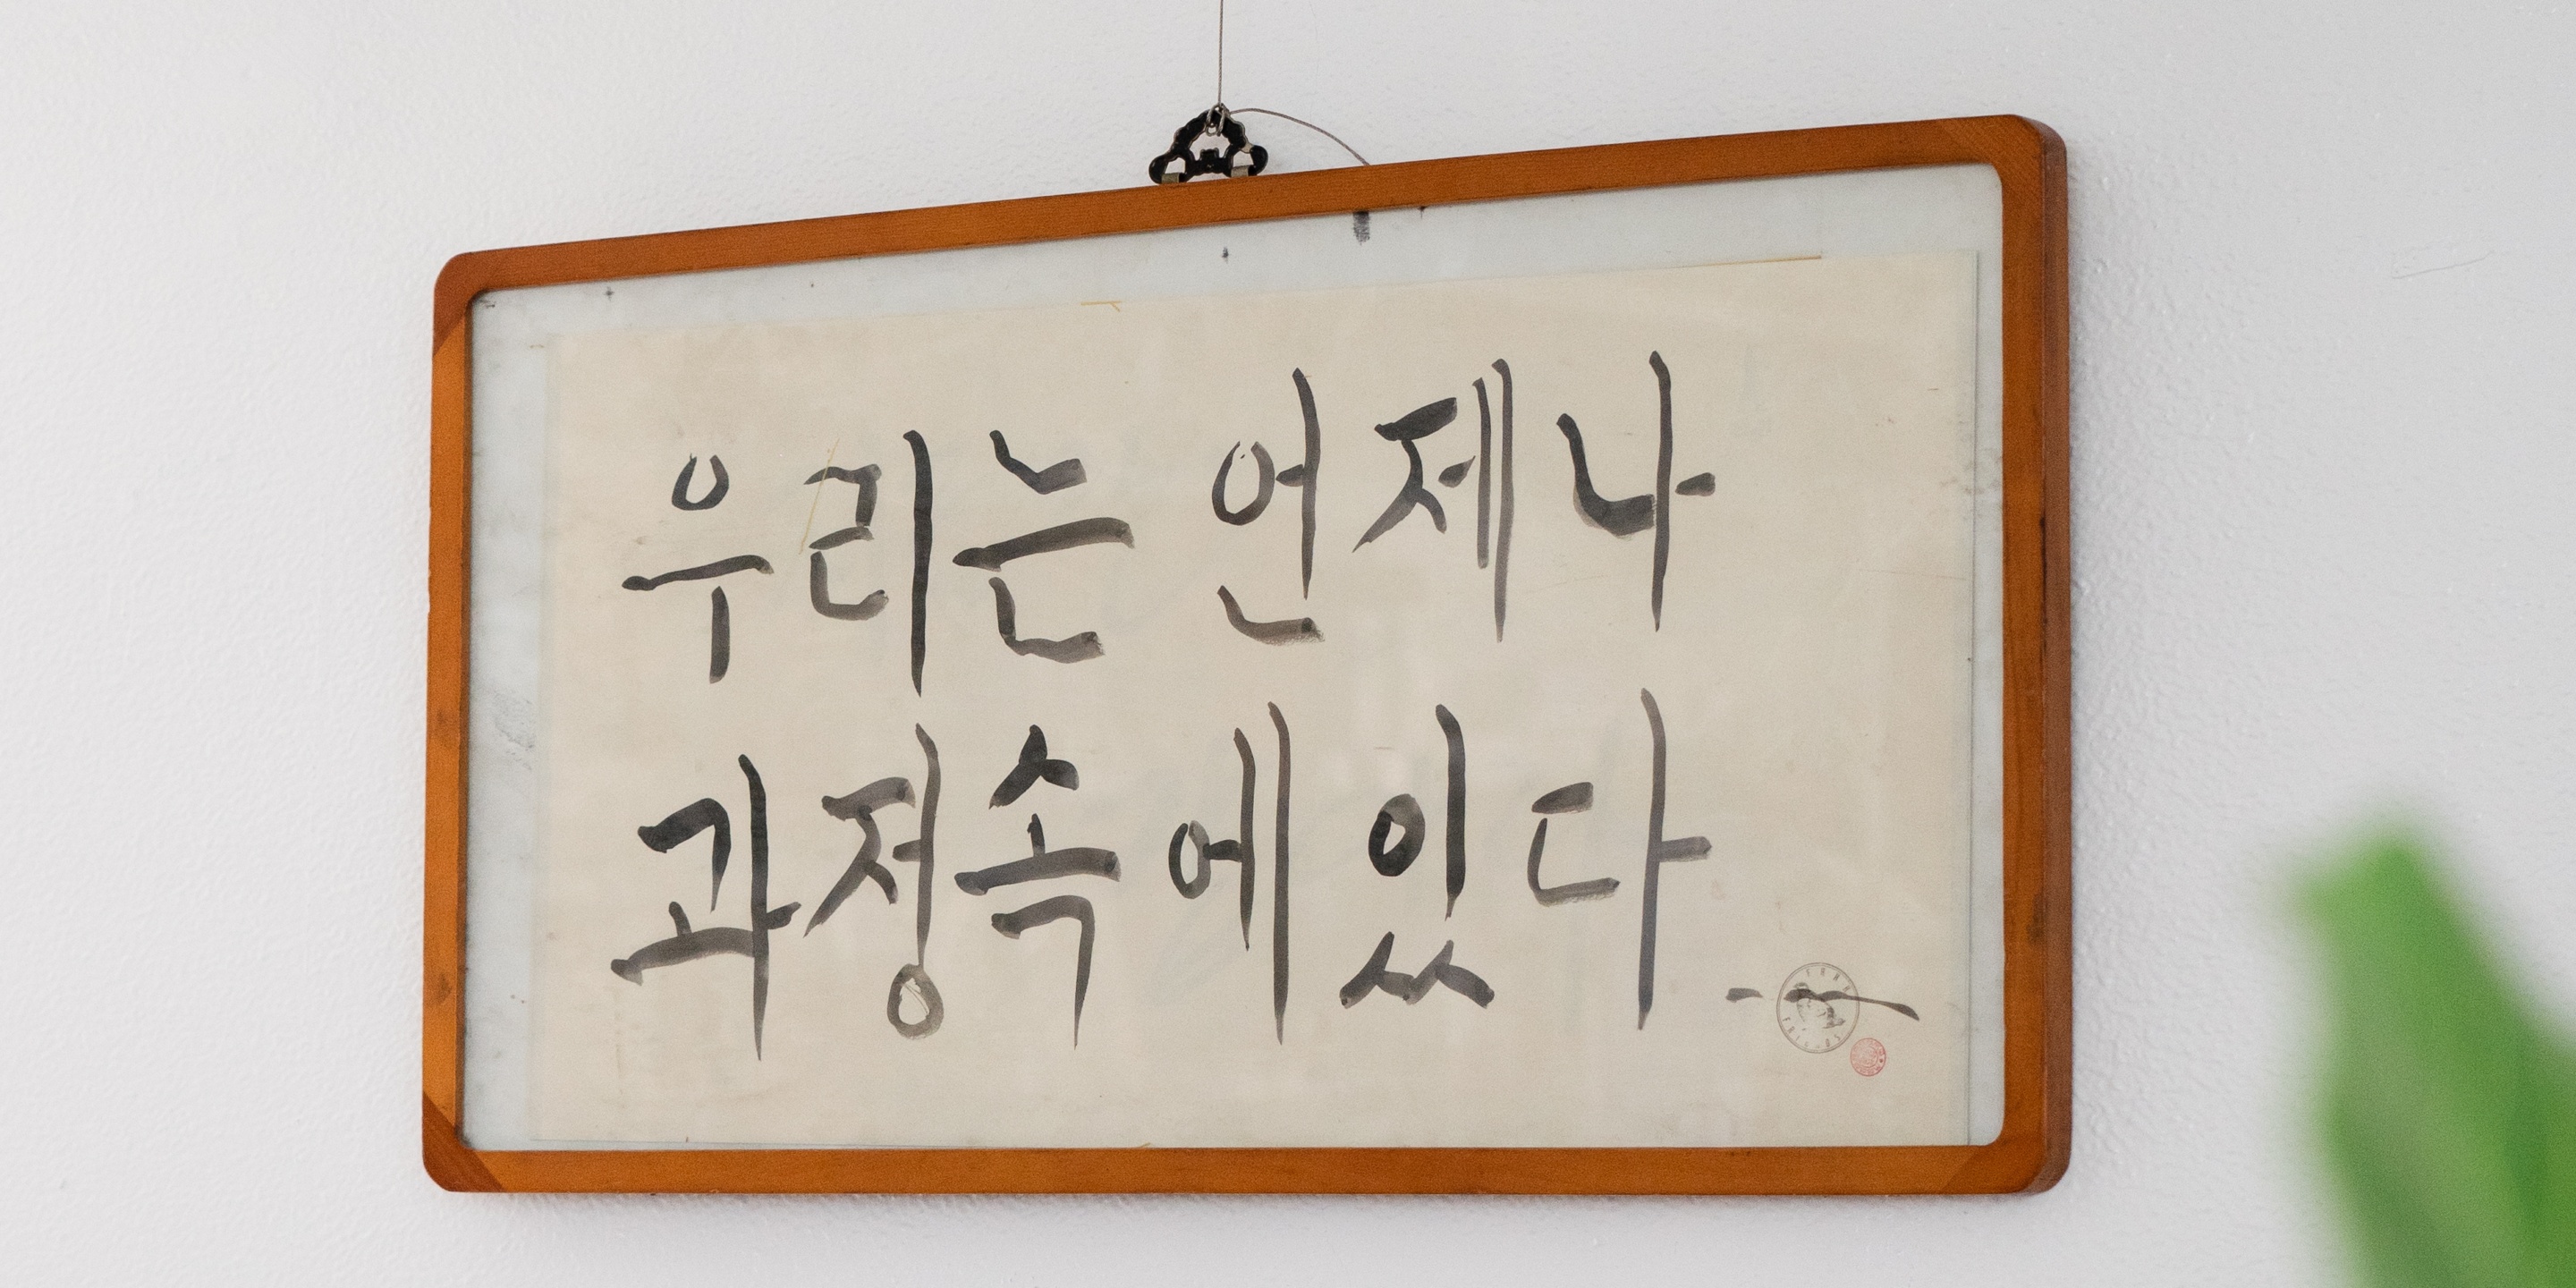 우리는 언제나
과정속에 있다